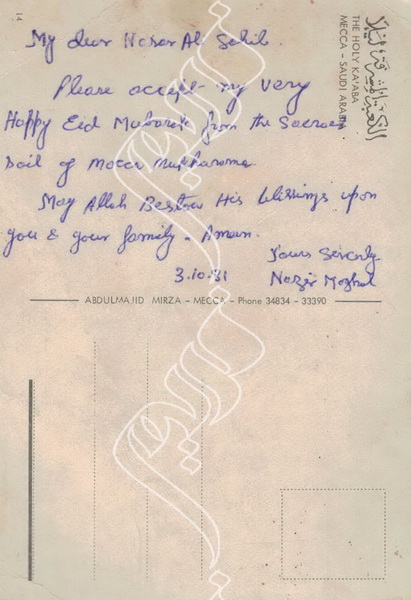 14
My dear Nasar Al Sahib.
Please accept my very
Happy Eid Mubarak from the Sacred
Soil of Mecca Mukharama
May Allah Bestow His blissings upon
you & your family - Amean.
Yours Sincerly
3.10.81
Nazir Moghul
الكعبة المشرفة ليلا
THE HOLY KA'ABA
MECCA - SAUDI ARABIA
ABDULMAJID MIRZA - MECCA - Phone 34834 - 33390